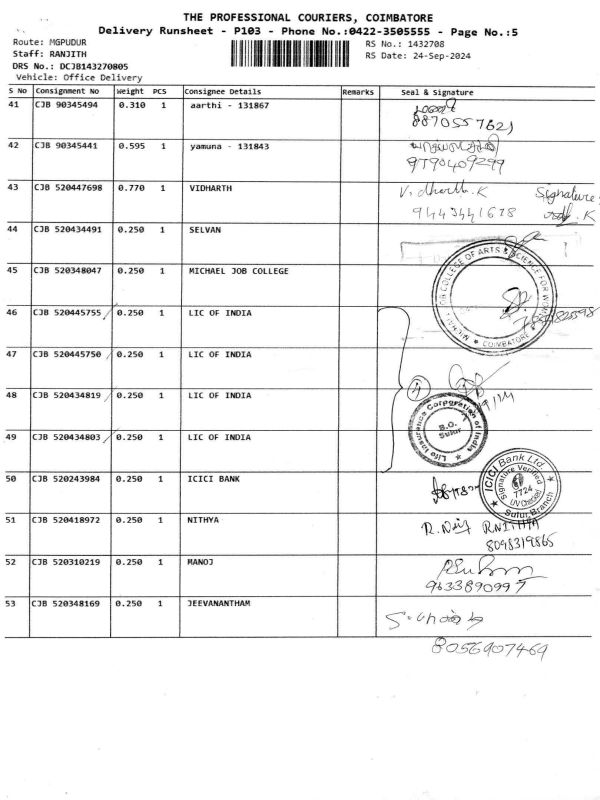 THE PROFESSIONAL COURIERS, COIMBATORE
Delivery Runsheet - P103 - Phone No.:0422-3505555 - Page No.:5
Route: MGPUDUR
Staff: RANJITH
DRS No.: DCJB143270805
Vehicle: Office Delivery
RS No.: 1432708
RS Date: 24-Sep-2024
S No Consignment No Weight PCS Consignee Details Remarks Seal & Signature
41 CJB 90345494 0.310 1 aarthi - 131867
8870557621
42 CJB 90345441 0.595 1 yamuna - 131843
9790409299
43 CJB 520447698 0.770 1 VIDHARTH V. dharth.K Signature:
9443441678
44 CJB 520434491 0.250 1 SELVAN
45 CJB 520348047 0.250 1 MICHAEL JOB COLLEGE
COLLEGE OF ARTS & SCIENCE FOR WOMEN
COIMBATORE
46 CJB 520445755 0.250 1 LIC OF INDIA
47 CJB 520445750 0.250 1 LIC OF INDIA
48 CJB 520434819 0.250 1 LIC OF INDIA
4
49 CJB 520434803 0.250 1 LIC OF INDIA
Life Insurance Corporation of India
B.O.
Sulur
50 CJB 520243984 0.250 1 ICICI BANK
ICICI Bank Ltd.
Signature Verified
7724
UV Checked
Sulur Branch
51 CJB 520418972 0.250 1 NITHYA R.NITHYA
8098319865
52 CJB 520310219 0.250 1 MANOJ
9633890997
53 CJB 520348169 0.250 1 JEEVANANTHAM
8056907469